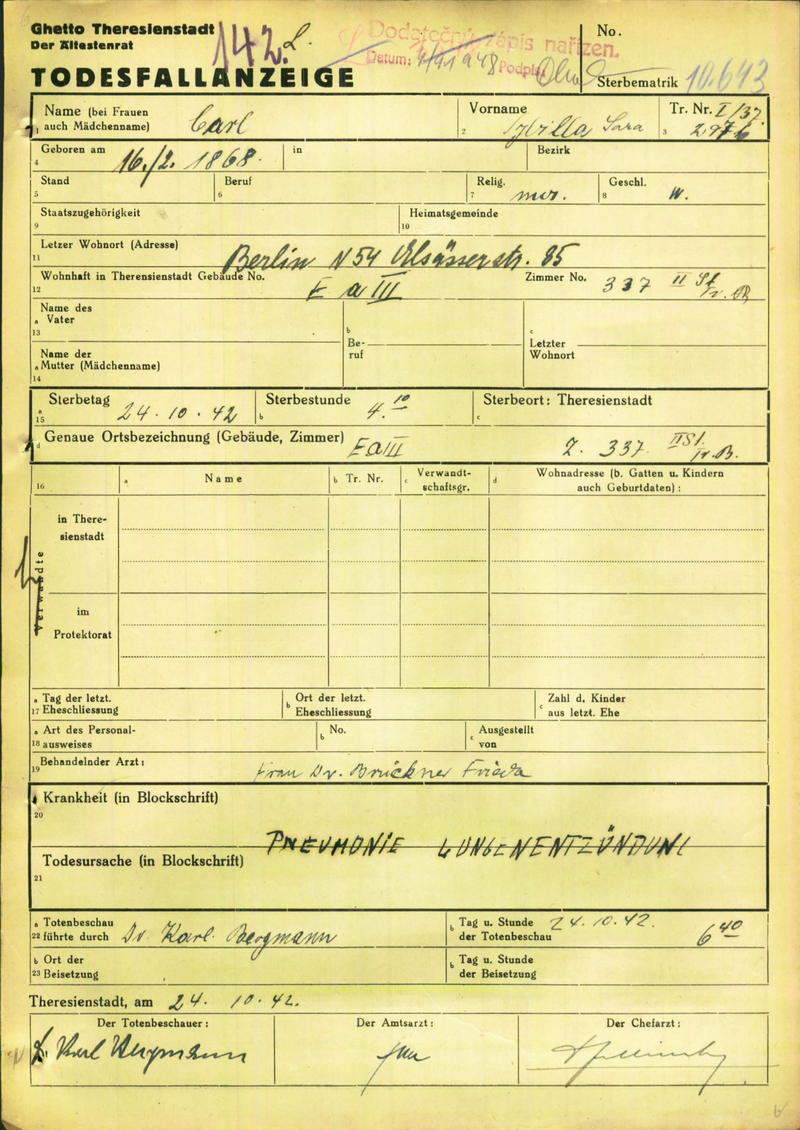 Ghetto Theresienstadt
Der Ältestenrat
142.
Dodatečný zápis nařízen.
Datum: 1948 Podpis
No.
TODESFALLANZEIGE
Sterbematrik 10.643
Name (bei Frauen
1 auch Mädchenname) Carl
Vorname
2 Sybilla Sara
Tr. Nr. I/37
3 2976
Geboren am
4 16./2. 1868.
in
Bezirk
Stand
5
Beruf
6
Relig.
7 mos.
Geschl.
8 w.
Staatszugehörigkeit
9
Heimatsgemeinde
10
Letzer Wohnort (Adresse)
11 Berlin N 54 Elsässerstr. 85
Wohnhaft in Theresienstadt Gebäude No.
12 E a III
Zimmer No. 337 II St
Tr. B
Name des
a Vater
13
b
Be-
ruf
c
Letzter
Wohnort
Name der
a Mutter (Mädchenname)
14
a Sterbetag
15 24.10.42
Sterbestunde
b 4.10
Sterbeort: Theresienstadt
c
d Genaue Ortsbezeichnung (Gebäude, Zimmer) E a III
Z. 337 II St.
Tr. B.
16
a Name
b Tr. Nr.
c Verwandt-
schaftsgr.
d Wohnadresse (b. Gatten u. Kindern
auch Geburtdaten) :
Verwandte
in There-
sienstadt
im
Protektorat
a Tag der letzt.
17 Eheschliessung
b Ort der letzt.
Eheschliessung
c Zahl d. Kinder
aus letzt. Ehe
a Art des Personal-
18 ausweises
b No.
c Ausgestellt
von
Behandelnder Arzt:
19 Frau Dr. Brückner Frieda
Krankheit (in Blockschrift)
20
PNEUMONIE LUNGENENTZÜNDUNG
Todesursache (in Blockschrift)
21
a Totenbeschau
22 führte durch Dr Karl Bergmann
b Tag u. Stunde
der Totenbeschau 24.10.42. 6 40
b Ort der
23 Beisetzung
b Tag u. Stunde
der Beisetzung
Theresienstadt, am 24. 10. 42.
Der Totenbeschauer:
Der Amtsarzt:
Der Chefarzt:
Dr Karl Bergmann